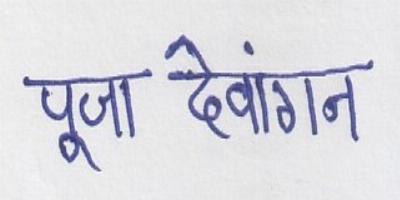 पूजा देवांगन